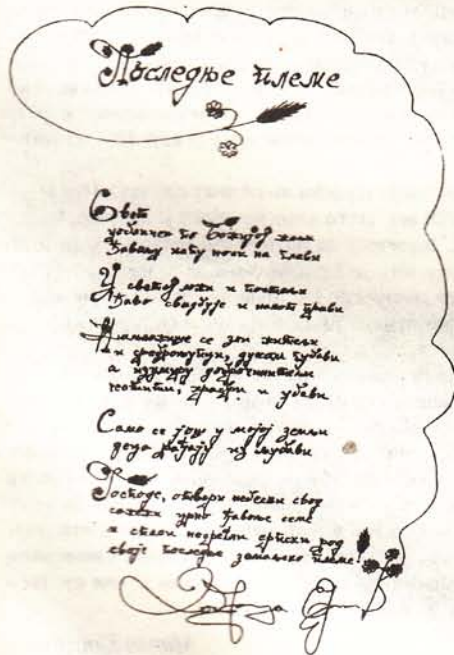 Последње племе
Свет
уобличен по Божијој
ђаволу капу носи на глави
У светој ложи и постељи
Ђаво свијује и шаот прави
Намножише се зли житељи
и сродомупци, дукат губави
а изумиру доброчинитељи
честити, здрави и убави
Само се још у мојој земљи
деца рађају из љубави
Господе, отвори небески свод
сажежи урну ђавоље семе
и спаси српски род
своје последње земаљско племе!